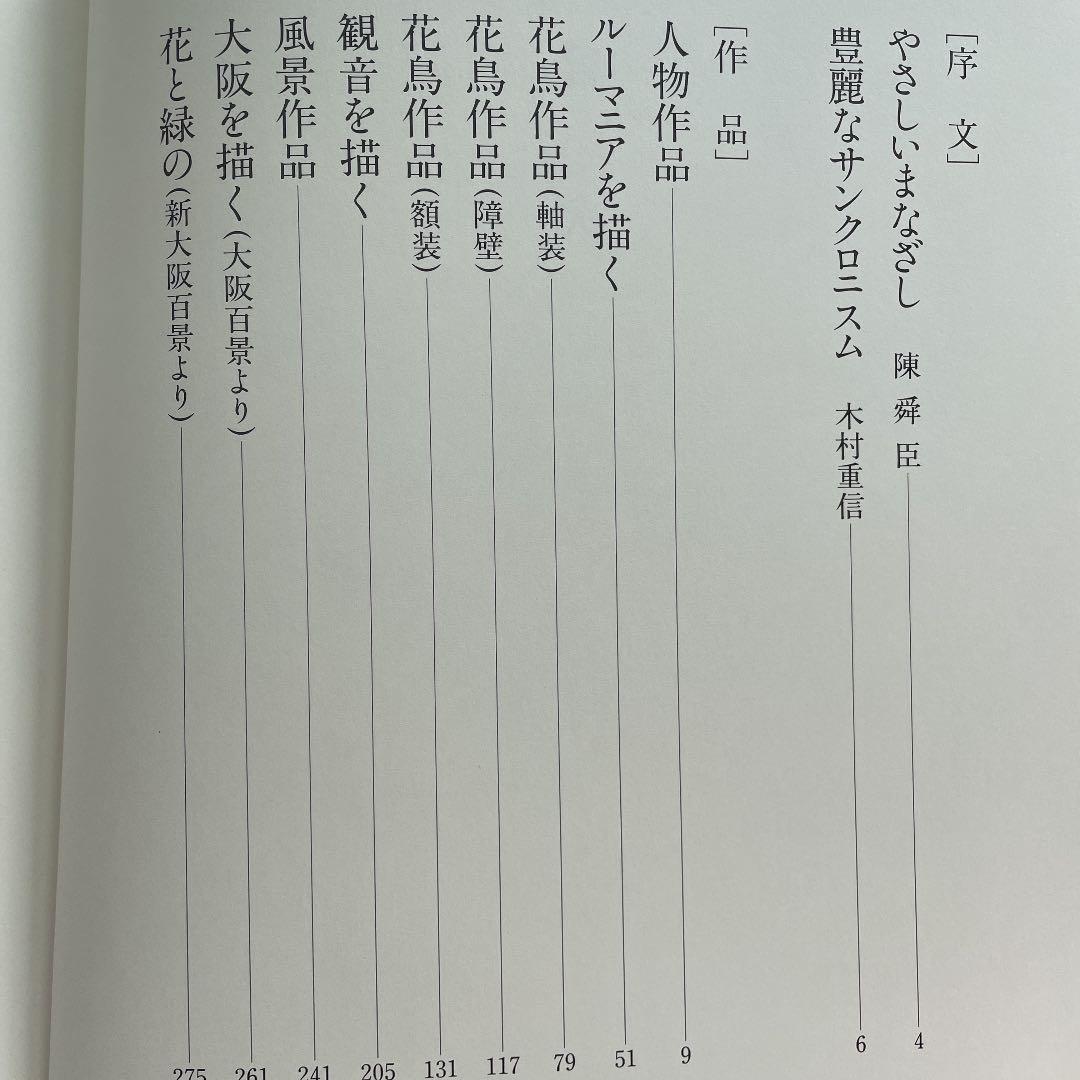 ［序　文］
やさしいまなざし　陳 舜 臣 4
豊麗なサンクロニスム　木村重信 6
［作　品］
人物作品 9
ルーマニアを描く 51
花鳥作品（軸装） 79
花鳥作品（障壁） 117
花鳥作品（額装） 131
観音を描く 205
風景作品 241
大阪を描く（大阪百景より） 261
花と緑の（新大阪百景より） 275